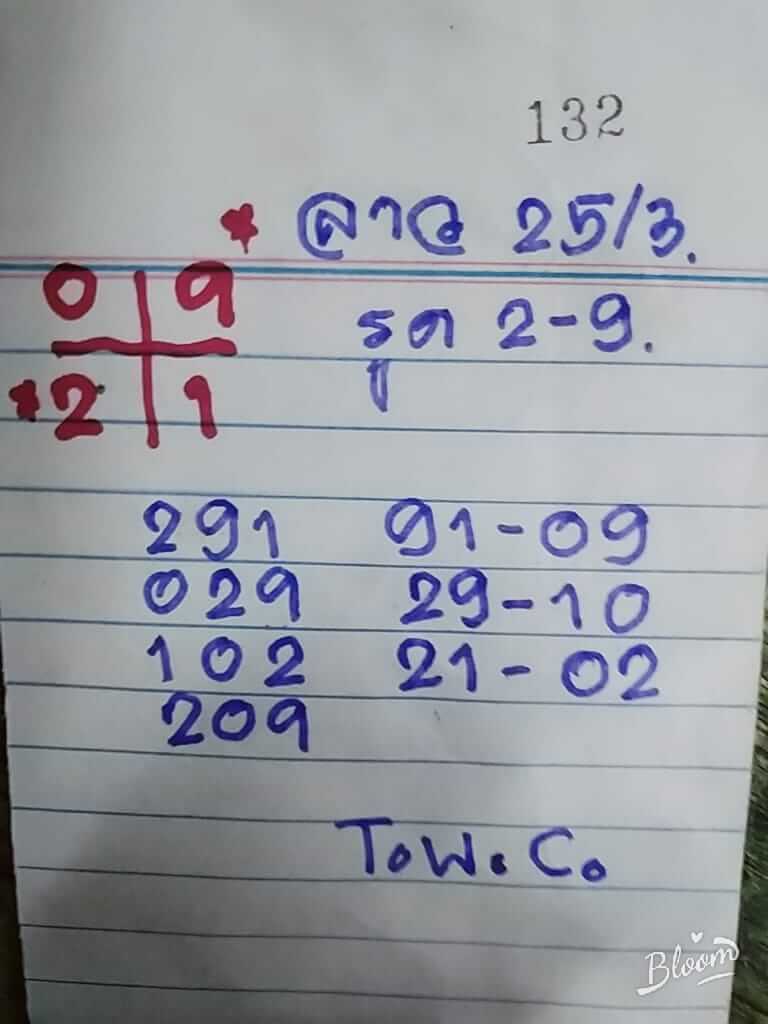 132
ลาว 25/3.
0 9
2 1
รูด 2-9.
291 91-09
029 29-10
102 21-02
209
T.W.C.
Bloom